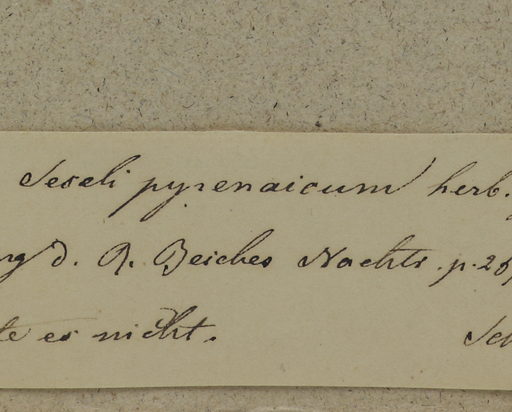 Seseli pyrenaicum herb.
d. R. Beiches Nachtr. p.
es nicht.